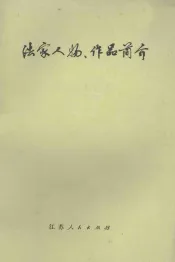 法家人物、作品简介
江苏人民出版社